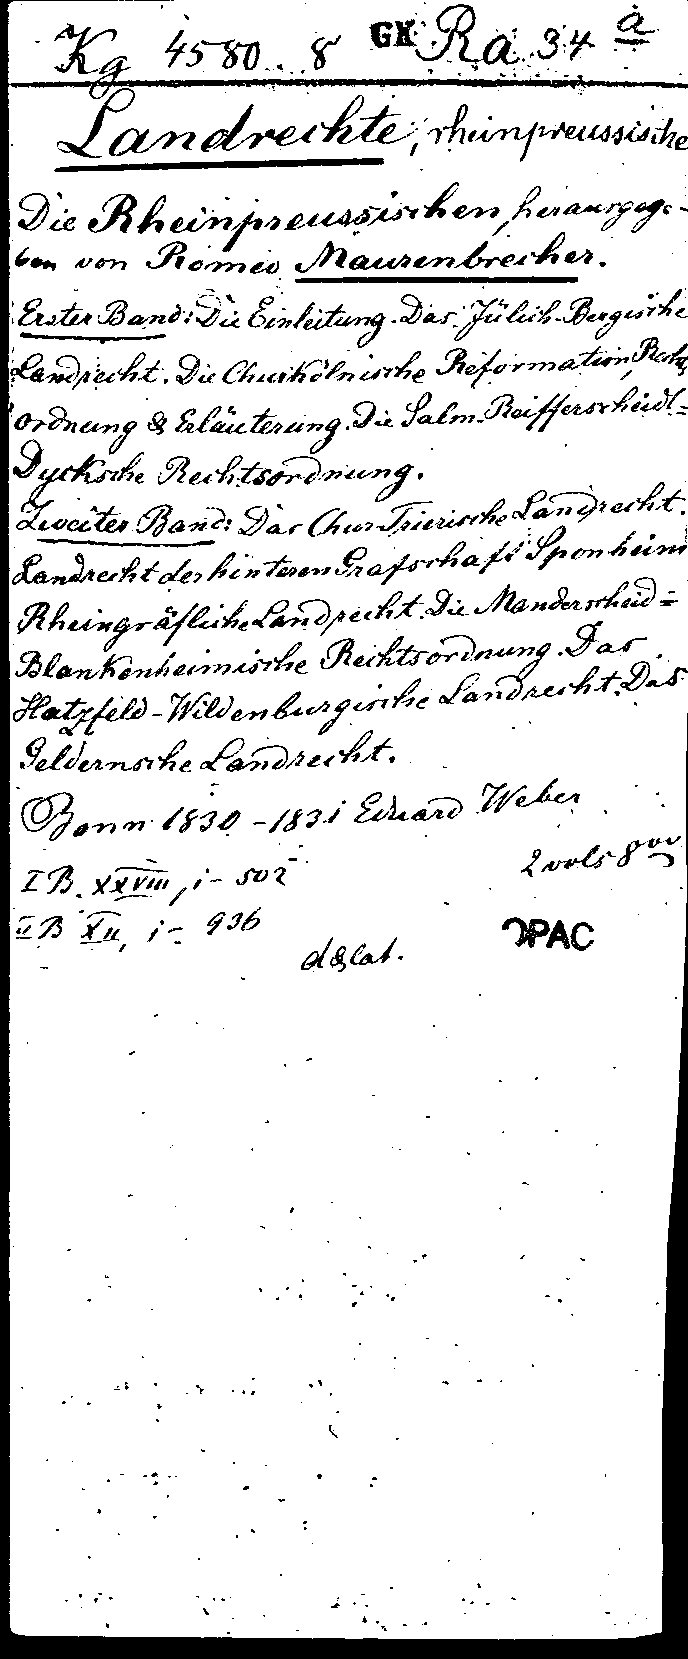 Kg 4580. 8 GK Ra 34 a
Landrechte, rheinpreussische
Die Rheinpreussischen, herausgege-
ben von Romeo Maurenbrecher.
Erster Band: Die Einleitung. Das Jülich-Bergische
Landrecht. Die Churkölnische Reformation, Rechts
ordnung & Erläuterung. Die Salm-Reifferscheidt=
Dycksche Rechtsordnung.
Zweiter Band: Das Chur-Trierische Landrecht.
Landrecht der hinteren Grafschaft Sponheim
Rheingräfliche Landrecht. Die Manderscheid=
Blankenheimische Rechtsordnung. Das
Hatzfeld-Wildenburgische Landrecht. Das
Geldernsche Landrecht.
Bonn 1830-1831 Eduard Weber
2 vols 8vo
I B. XXVIII, i- 502
II B XII, i- 936
d & lat.
OPAC